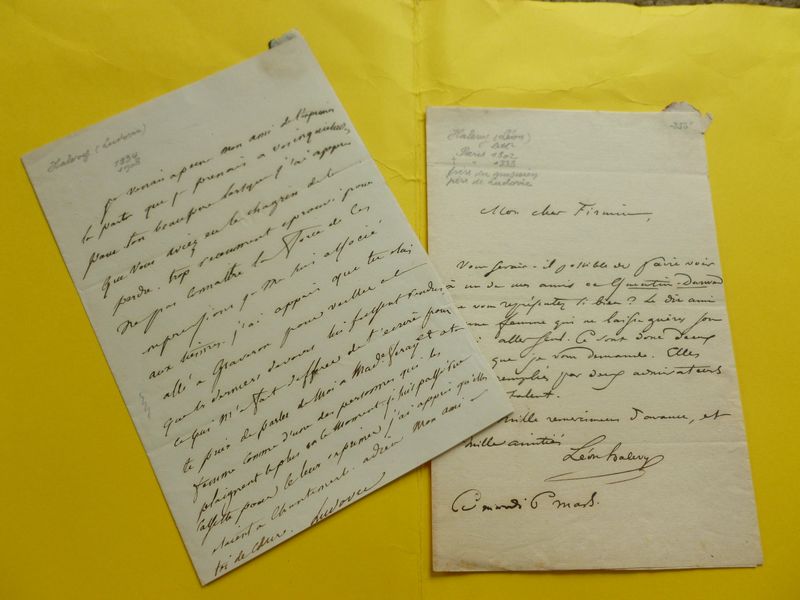 Halevy (Ludovic)
1834
1908
je venais apeine mon ami de t'exprimer
la parte que je prenais a vos inquietudes
pour ton beaufrere lorsque j'ai appris
que vous aviez eu le chagrin de le
perdre. trop recemment eprouvé pour
ne pas connaître la force de ces
impressions je me suis associé
aux tiennes. j'ai appris que tu étais
allé a pour veiller a
que les derniers devoirs lui fussent rendus
ce qui m'a fait differer de t'ecrire
je te prie de parler de moi a Made et a ta
femme comme d'une des personnes qui les
plaignent le plus en le moment
pour le leur exprimer j'ai appris qu'elles
etaient a adieu mon ami
toi de cœur. Ludovic
Halevy (Léon)
Paris 1802
frère du musicien
père de Ludovic
Mon cher Firmin,
Vous serait-il possible de faire voir
à un de mes amis ce Quentin-Durward
que vous représentez si bien? Le dit ami
a une femme qui ne laisse guères son
aller seul. Ce sont donc deux
que je vous demande. Elles
remplies par deux admirateurs
talent.
Mille remerciemens d'avance, et
mille amitiés
Léon halevy
Ce mardi 6 mars.